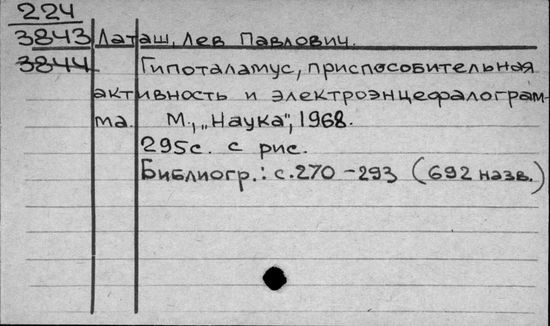 224
3843 Латаш, Лев Павлович.
3844 Гипоталамус, приспособительная
активность и электроэнцефалограм-
ма. М., „Наука", 1968.
295с. с рис.
Библиогр.: с.270-293 (692 назв.)